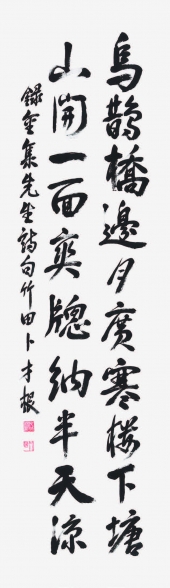 烏鵲橋邊月廣寒樓下塘
山開一面爽牕納半天涼
錄金集先生詩句竹田卜才根